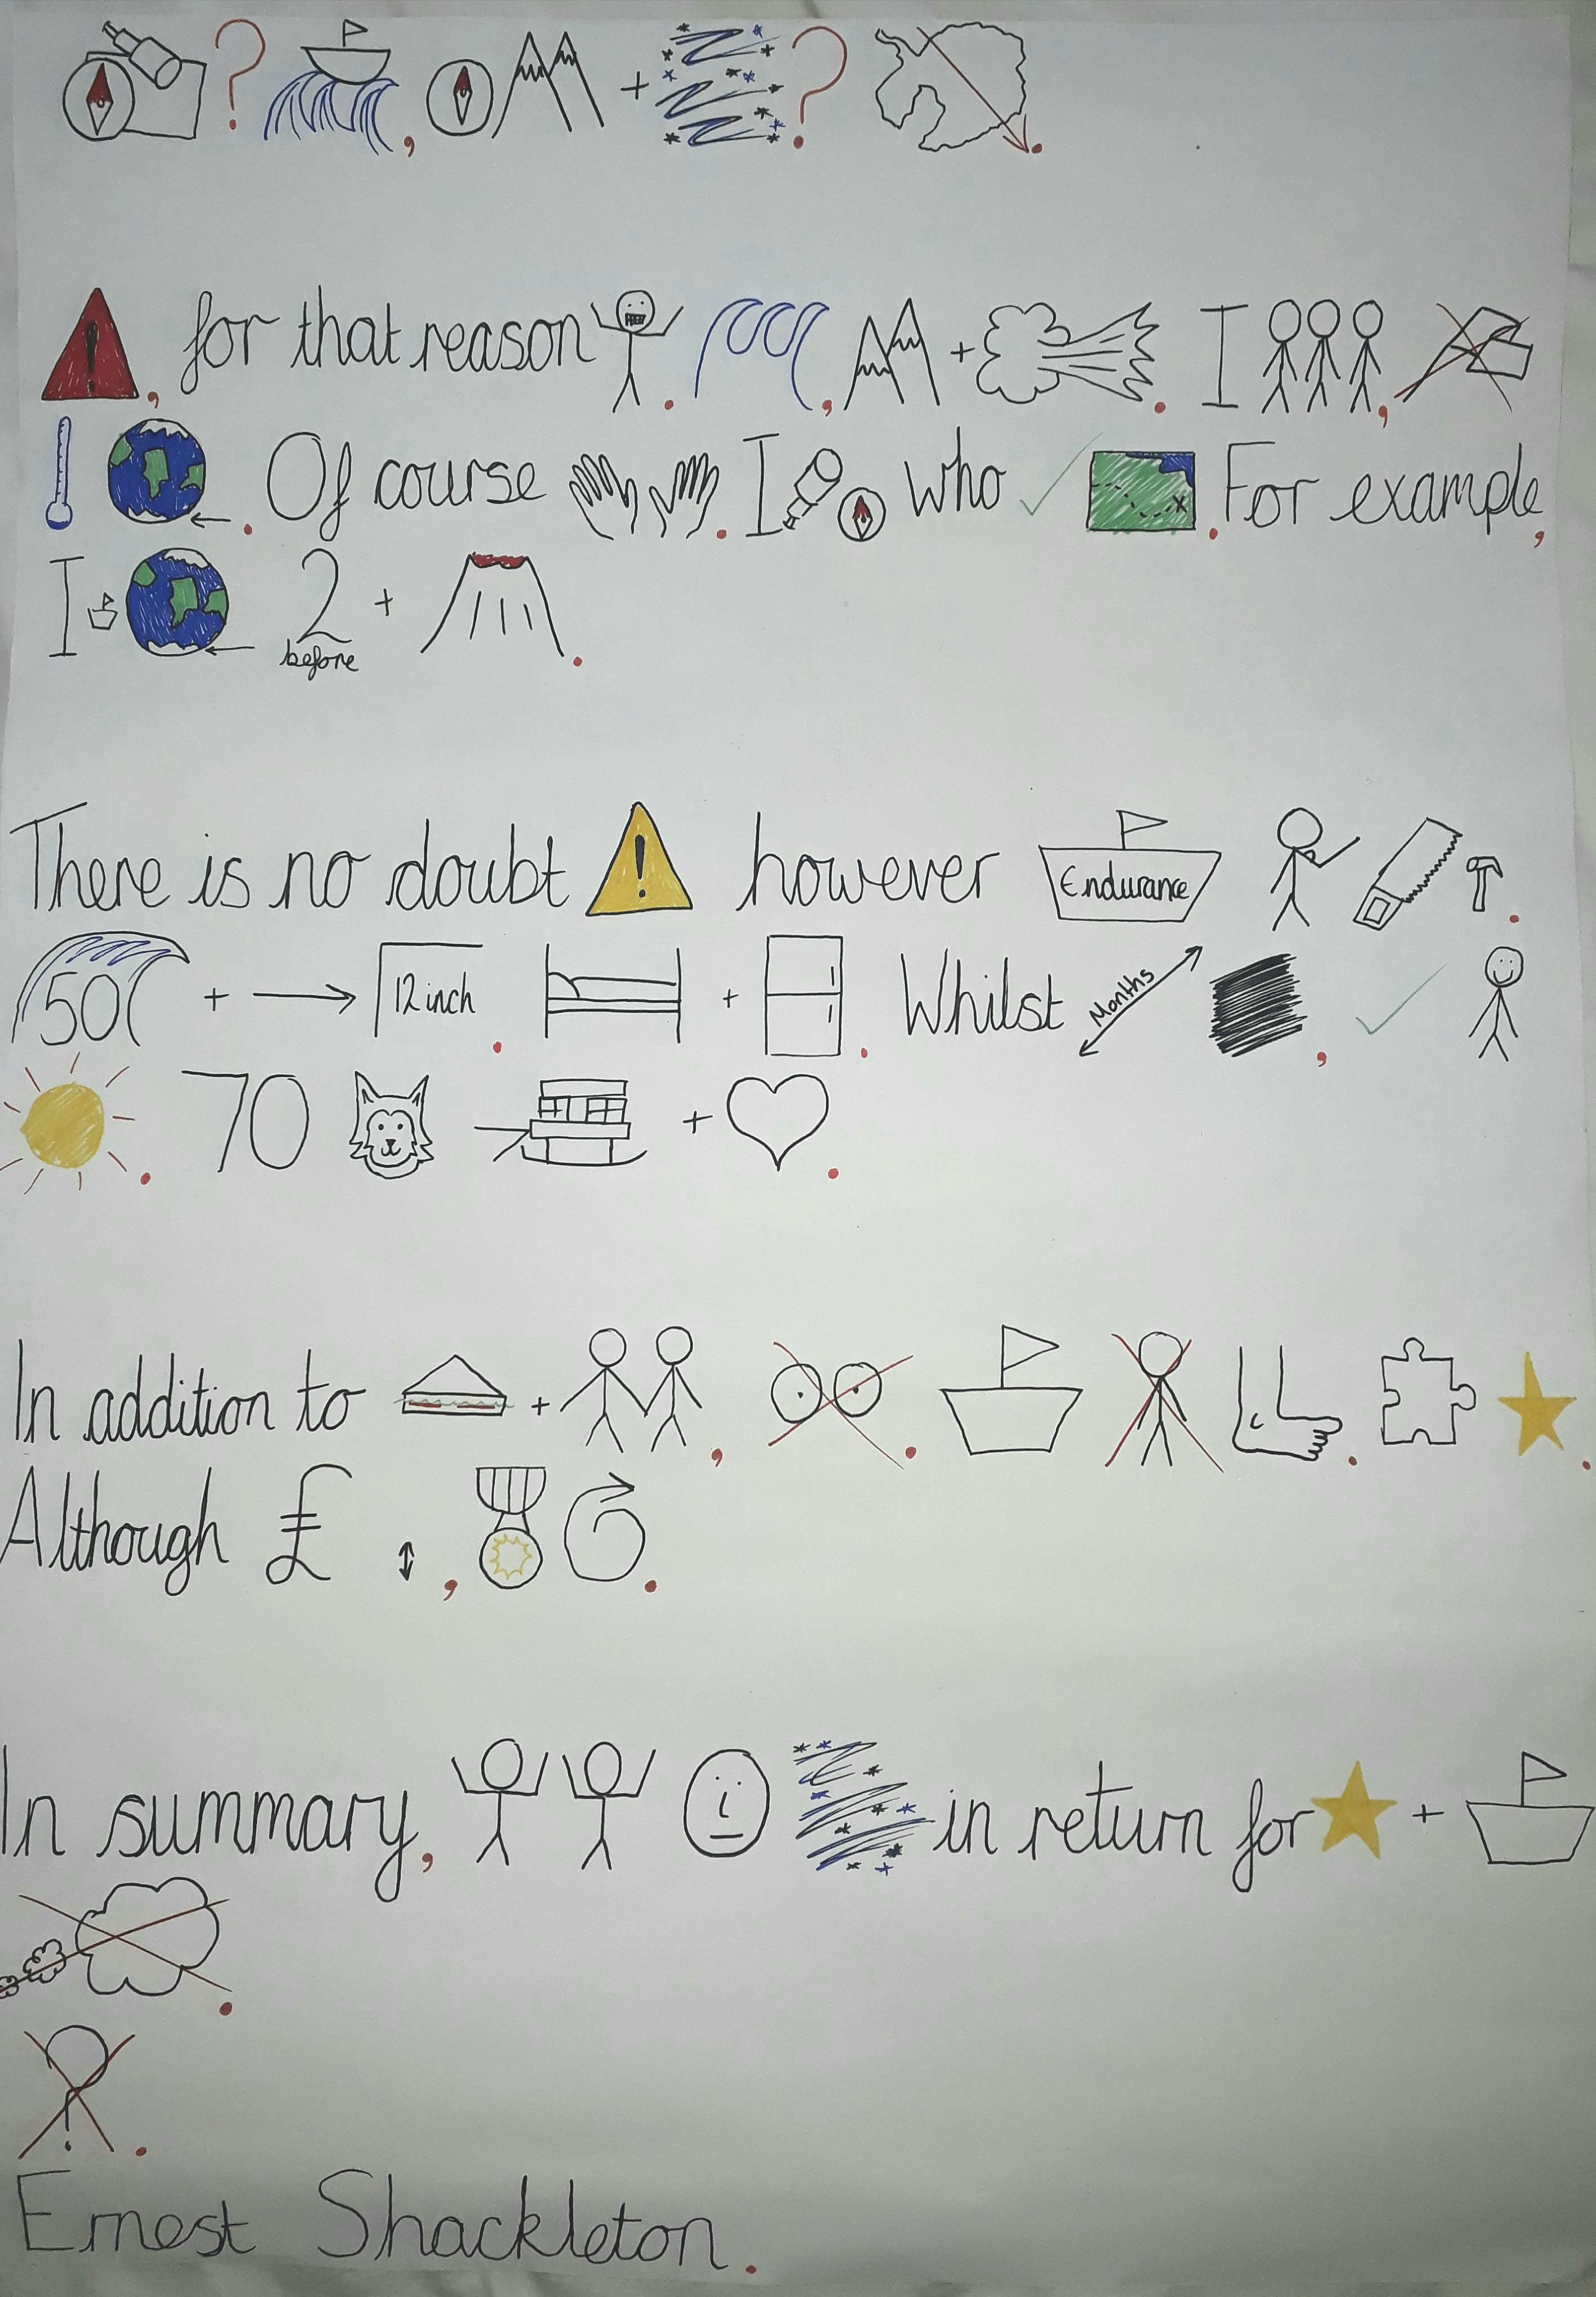 ? , + ? .
, for that reason . , + . I ,
. Of course . I who . For example,
I 2 before + .
There is no doubt however Endurance .
50 + 12 inch . + . Whilst Months ,
. 70 + .
In addition to + , . . .
Although £ , .
In summary, in return for +
.
? .
Ernest Shackleton.